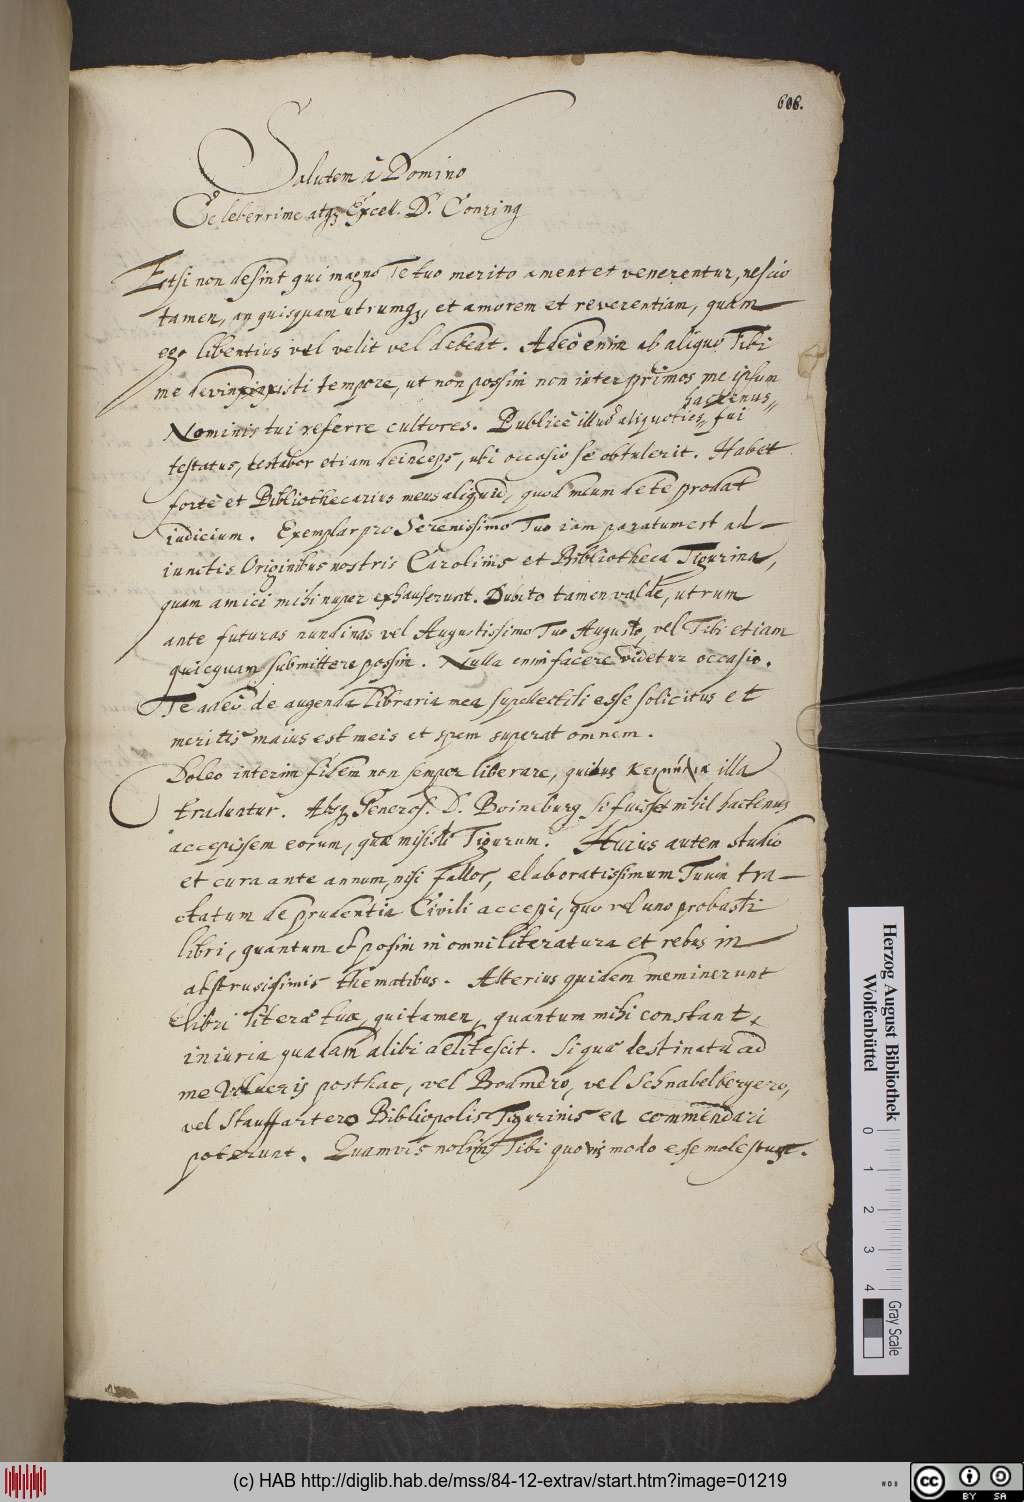 606.
Salutem à Domino
Celeberrime atq; Excell. D. Conring
Etsi non desint qui magno Te tuo merito ament et venerentur, nescio
tamen, an quisquam utrumq;, et amorem et reverentiam, quam
ego libentius vel velit vel debeat. Adeò enim ab aliquo Tibi
me devinxisti tempore, ut non possim non inter primos me ipsum
hactenus,,
Nominis tui referre cultores. Publicè illud aliquoties,, fui
testatus, testabor etiam deinceps, ubi occasio se obtulerit. Habet
fortè et Bibliothecarius meus aliquid, quod meum de te prodat
iudicium. Exemplar pro Serenissimo Tuo iam paratum est ad-
iunctis Originibus nostris Carolinis et Bibliotheca Tigurina,
quam amici mihi nuper exhauserunt. Dubito tamen valdè, utrum
ante futuras nundinas vel Augustissimo Tuo Augusto, vel Tibi etiam
quicquam submittere possim. Nulla enim facere videtur occasio.
Te adeò de augenda libraria mea supellectili esse solicitus et
meritis maius est meis et spem superat omnem.
Doleo interim fidem non semper liberare, quibus κειμήλια illa
traduntur. Absq; Generos. D. Boineburg si fuisset nihil hactenus
accepissem eorum, quæ misisti Tigurum. Huius autem studio
et cura ante annum, nisi fallor, elaboratissimum Tuum tra-
ctatum de prudentia Civili accepi, quo vel uno probasti
libri, quantum possim in omni literatura et rebus in
abstrusissimis thematibus. Alterius quidem meminerunt
libri literæ tuæ, qui tamen, quantum mihi constant,
iniuria quadam alibi delitescit. Si quæ destinata ad
me volueris posthac, vel Bodmero, vel Schnabelbergero,
vel Stauffachero Bibliopolis Tigurinis ea commendari
poterunt. Quamvis nolim Tibi quovis modo esse molestus.
Herzog August Bibliothek
Wolfenbüttel
0 1 2 3 4
Gray Scale
(c) HAB http://diglib.hab.de/mss/84-12-extrav/start.htm?image=01219
cc BY SA